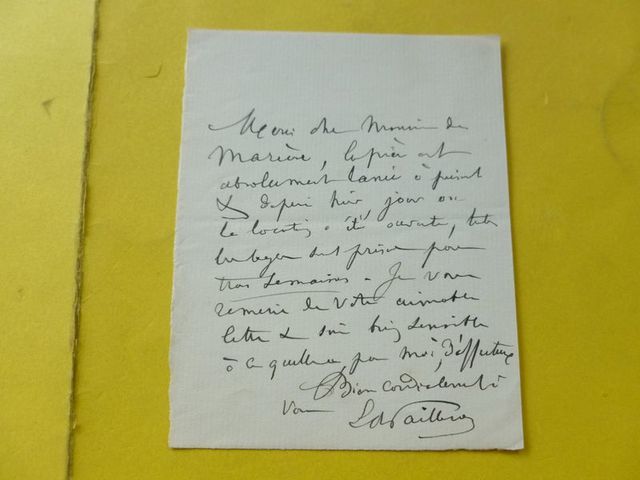 Merci cher Monsieur de
Marière, le prix est
absolument
& depuis hier, jour où
la location a été ouverte,
les loges sont prises pour
trois semaines. Je vous
remercie de votre aimable
lettre & suis bien sensible
à ce qu'elle a, pour moi, d'affectueux
Bien cordialement à
vous